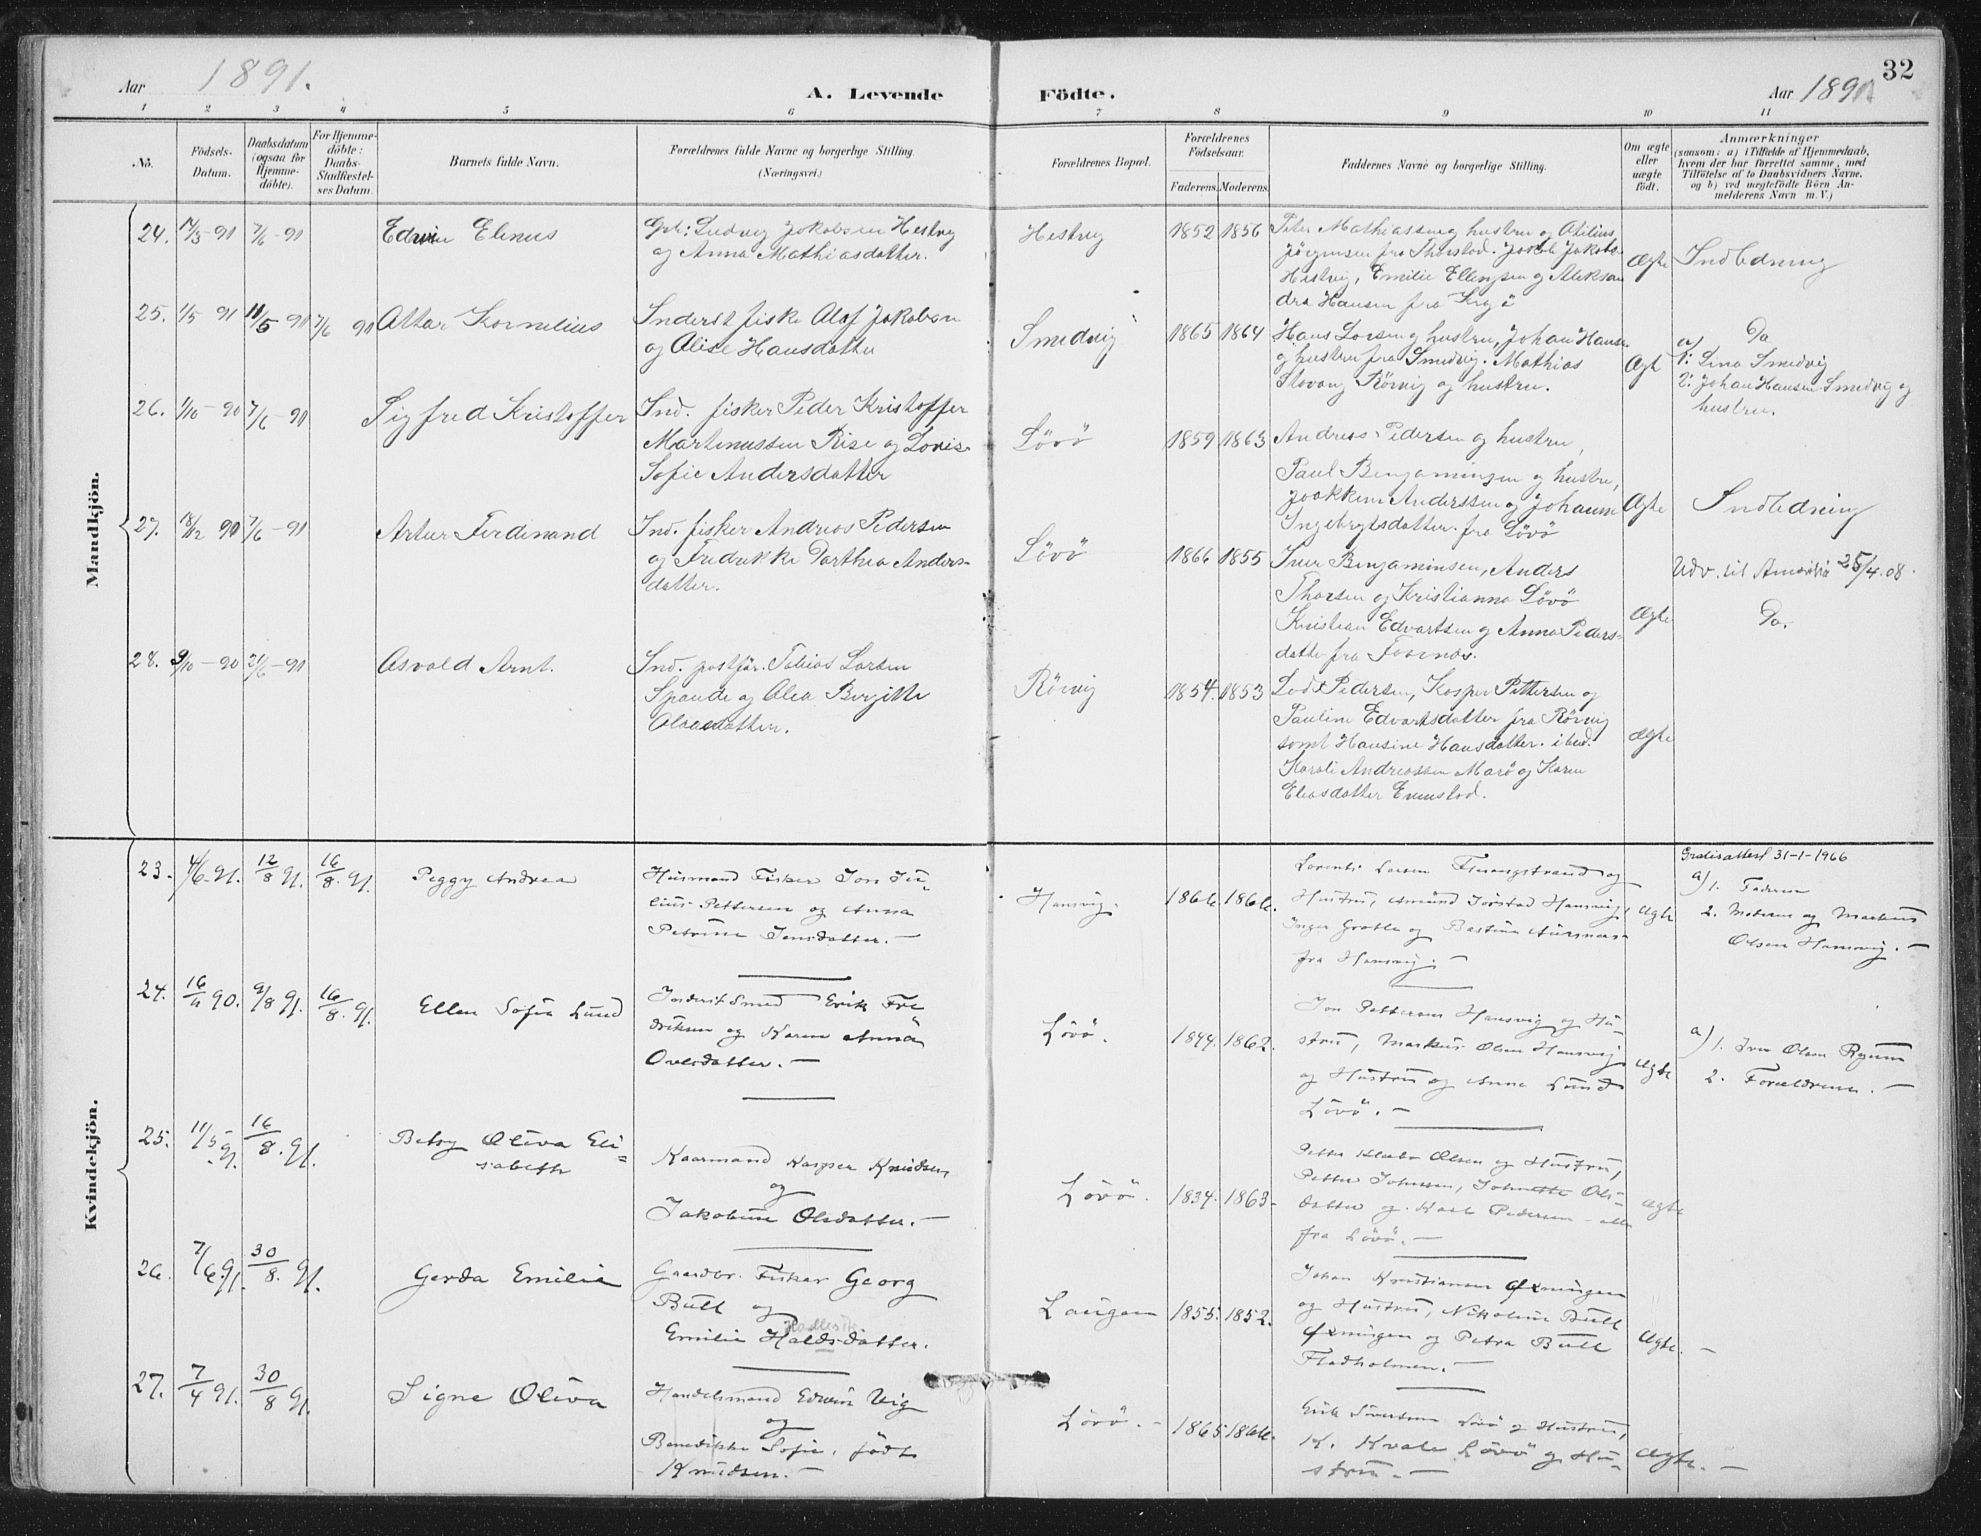 32
Aar 1891.
A. Levende Födte.
Aar 1891
1 2 3 4 5 6 7 8 9 10 11
No.
Födsels-
Datum.
Daabsdatum
(ogsaa for
Hjemme-
döbte).
For Hjemme-
döbte:
Daabs-
Stadfæstel-
ses Datum.
Barnets fulde Navn.
Forældrenes fulde Navne og borgerlige Stilling.
(Næringsvei.)
Forældrenes Bopæl.
Forældrenes
Födselsaar.
Faderens. Moderens.
Faddernes Navne og borgerlige Stilling.
Om ægte
eller
uægte
födt.
Anmærkninger
(saasom: a) i Tilfælde af Hjemmedaab,
hvem der har forrettet samme, med
Tilföielse af to Daabsvidners Navne.
og b) ved uægtefödte Börn An-
melderens Navn m. V.)
Mandkjön.
24. 17/3-91 7/6-91
Edvin Elenus
Gbr. Ludvig Jakobsen Hestvig
og Anna Mathiasdatter.
Hestvig
1852 1856
Peter Mathiassen og hustru og
Jörgensen fra Thorstad. Jakob Jakobs.
Hestvig, Emilie Ellingsen og Aleksan
dra Hansen fra
Ægte
Indledning
25. 1/5 91 11/5 91 7/6 91
Ottar Kornelius
Inderst fisker Olaf Jakobsen
og Alise Hansdatter
Smedvig
1865 1864
Hans Larsen og hustru, Johan Hansen
og hustru fra Smedvig. Mathias
Rörvig og hustru.
Ægte
Do
a/
1: Lina Smedvig
2: Johan Hansen Smedvig og
hustru.
26. 1/10-90 7/6-91
Sigfred Kristoffer
Ind. fisker Peder Kristoffer
Martinussen Rise og Lovise
Sofie Andersdatter
Lövö
1859 1863
Andreas Pedersen og hustru,
Paul Benjaminsen og hustru,
Joakkim Anderssen og Johanna
Ingebrigtsdatter fra Lövö
Ægte
Indledning
27. 18/12 90 7/6-91
Artur Ferdinand
Ind. fisker Andreas Pedersen
og Fredrikke Dorthea Anders-
datter.
Lövö
1866 1855
Iver Benjaminsen, Anders
Thorsen og Kristianna Lövö
Kristian Edvartsen og Anna Peders-
datter fra Fossnæs.
Ægte
Udv. til Amerika 25/4.08.
Do.
28. 9/10-90 21/6-91
Osvald Arnt.
Ind. postför. Tobias Larsen
Spande og Olea Birgitte
Olausdatter.
Rörvig
1854. 1853
Pedersen, Kasper Pettersen og
Pauline Edvartsdatter fra Rörvig
samt Hansine Hansdatter. ibid.
Karoli Andreassen Marö og Karen
Eliasdatter Evenstad.
Ægte
Kvindekjön.
23. 4/6-91. 12/8 91. 16/8. 91.
Peggy Andrea
Husmand Fisker Jon Ju-
lius Pettersen og Anna
Petrine Jensdatter. —
Hansvig.
1866. 1866.
Lorents Larsen Finangstrand og
Hustru, Amund Jörstad Hansvig,
Inger Grotle og Bastine
fra Hansvig. —
Ægte
Gratisattest 31-1-1966
a) 1. Faderen
2. Moderen og Markus
Olsen Hansvig. —
24. 16/11 90. 9/8 91. 16/8. 91.
Ellen Sofie Lund
Inderst Smed Erik Fre
driksen og Karen Anna
Ovesdatter. —
Lövö.
1844. 1862.
Jon Pettersen Hansvig og Hu-
stru, Markus Olsen Hansvig
og Hustru og Anna Lund
Lövö. —
Ægte
a) 1. Iver Olsen Ryum
2. Forældrene. —
25. 11/5-91. 16/8. 91.
Betsy Oliva Eli=
sabeth
Kaarmand Kasper Knudsen
og
Jakobine Olsdatter. —
Lövö.
1834. 1863.
Petter Olsen og Hustru,
Petter Johnsen, Johnette Ols-
datter og Karl Pedersen - alle
fra Lövö. —
Ægte
26. 7/6 91. 30/8. 91.
Gerda Emilie
Gaardbr. Fisker Georg
Bull og
Emilie Haldsdatter.
Laugen
1855. 1852.
Johan Kristiansen Öxningen
og Hustru, Nikoline Bull
Öxningen og Petra Bull
Fladholmen. —
Ægte. —
27. 7/4 91. 30/8 91.
Signe Oliva
Handelsmand Edvin Vig
og
Benedikte Sofie, födt
Knudsen. —
Lövö. —
1865 1866.
Erik Sivertsen Lövö og Hustru,
K. Kvale Lövö og Hu-
stru. —
Ægte. —